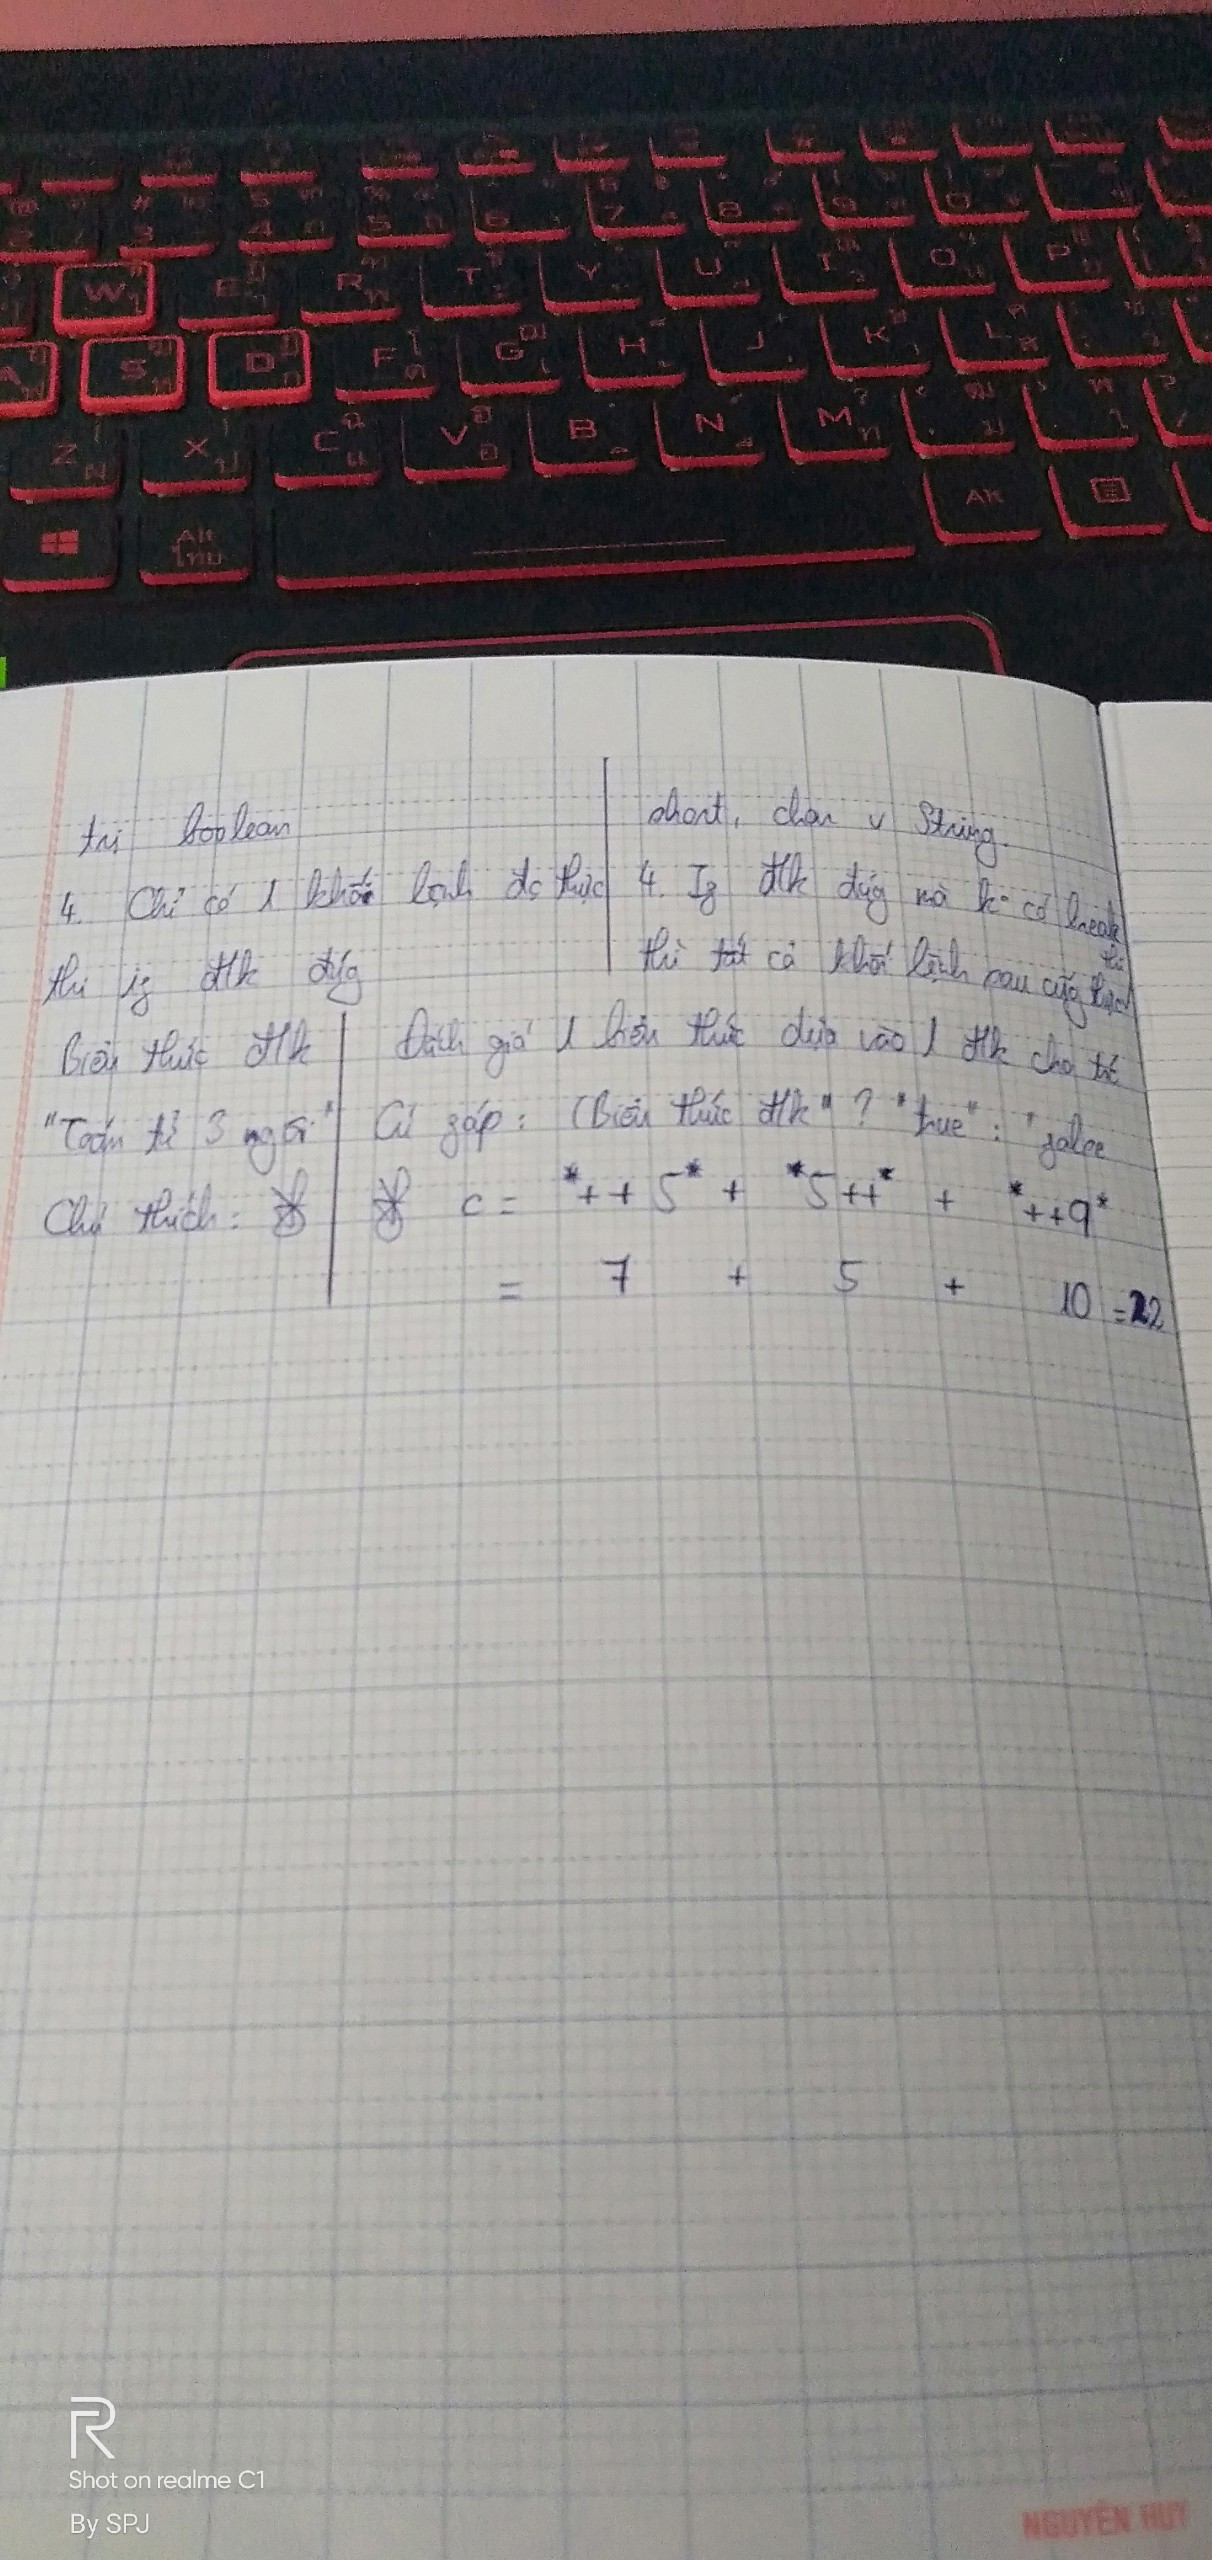 W E R T Y U I O P
A S D F G H J K L
Z X C V B N M
Alt Alt
trị boolean
short, char v String.
4. Chỉ có 1 khối lệnh đc thực
thi if đk đúg
4. If đk đúg mà k có break
thì tất cả khối lệnh sau cũg thực
thi
Biểu thức đk
"Toán tử 3 ngôi"
Chú thích:
Đánh giá 1 biểu thức dựa vào 1 đk cho trc
Cú pháp: (Biểu thức đk" ? "true" : "false
c = *++5* + *5++* + *++9*
= 7 + 5 + 10 = 22
R
Shot on realme C1
By SPJ
NGUYÊN HUY